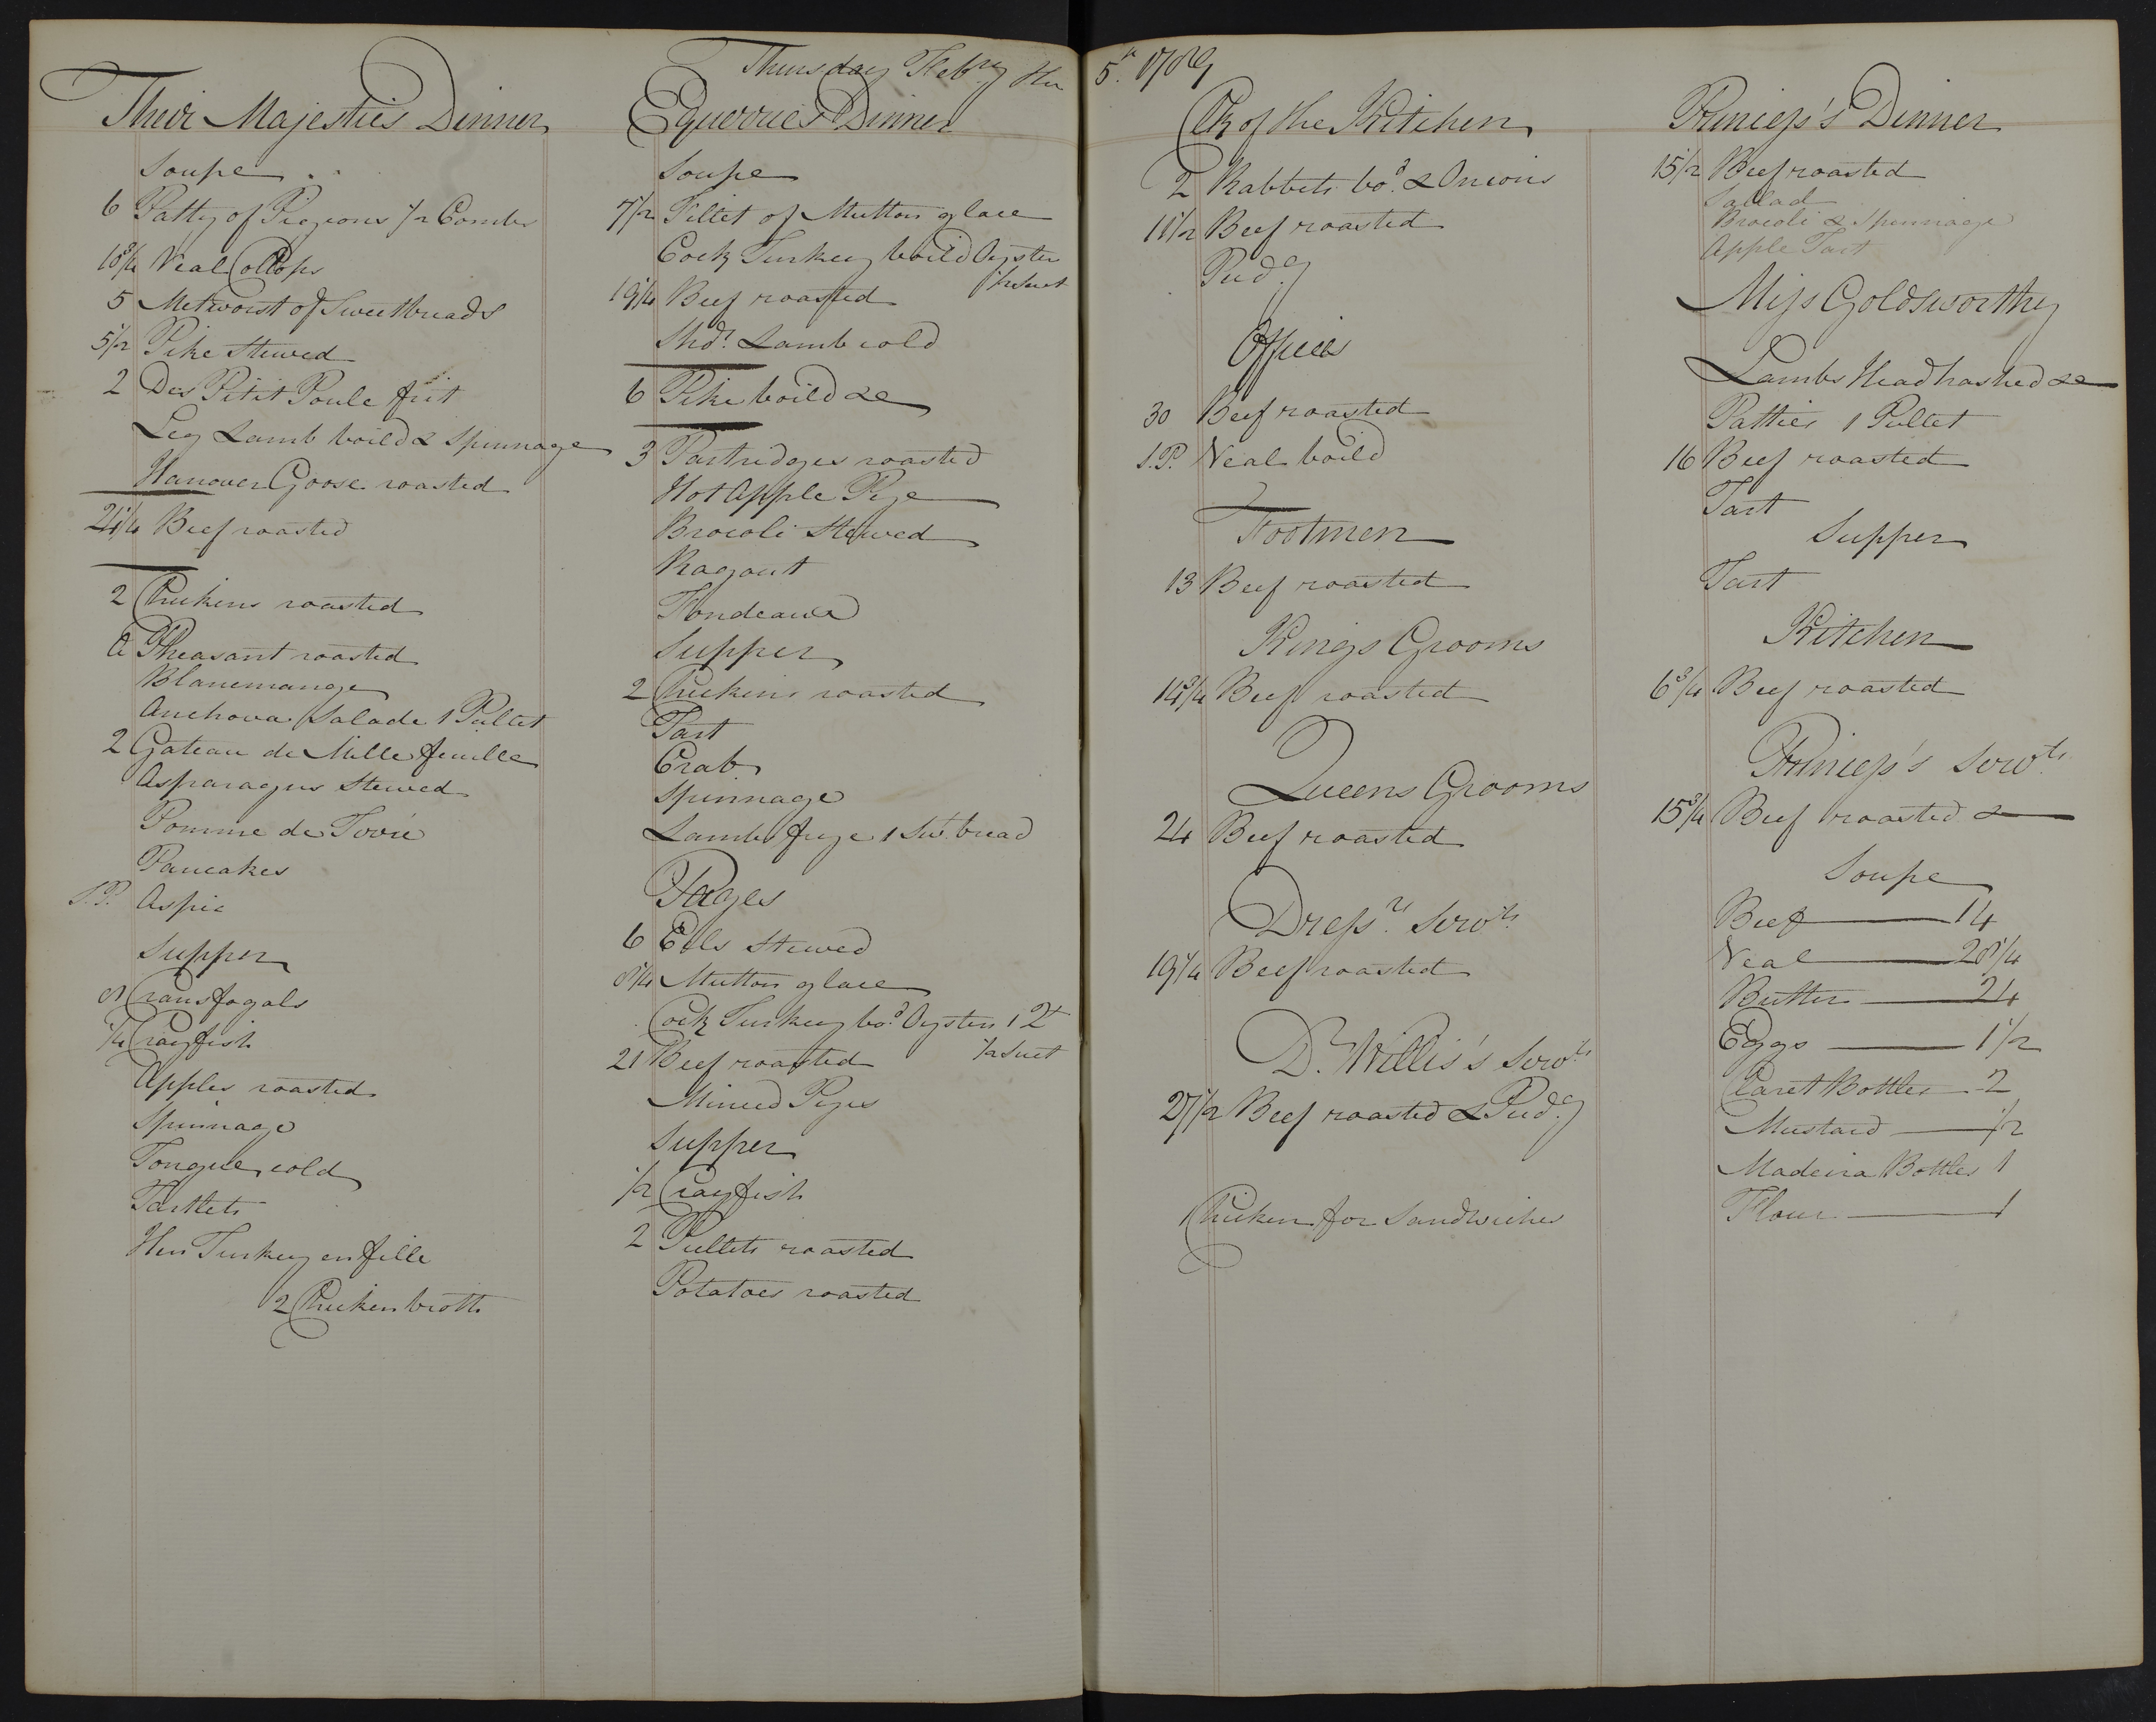 Thursday Feb.ry the 5.th 1789
Their Majesties Dinner
Soupe
6 Patty of Pigeons 1/2 Combs
10 3/4 Veal Collops
5 Metworst of Sweetbreads
5 1/2 Pike Stewed
2 Des Pitit Poule frit
Leg Lamb boild & Spinnage
Hanover Goose roasted
21 1/4 Beef roasted
2 Chickens roasted
a Pheasant roasted
Blancmange
Anchova Salade 1 Pullet
2 Gateau de Mille feuille
Asparagus Stewed
Pomme de
Pancakes
S.P. Aspic
Supper
Crausfogals
1/4 Crayfish
Apples roasted
Spinnage
Tongue cold
Tartlets
Hen Turkey en fille
2 Chicken broth
Equerries Dinner
Soupe
7 1/2 Fillet of Mutton glace
Cock Turkey boild Oyster
1/2 Suet
19 1/4 Beef roasted
Shd.r Lamb cold
6 Pike boild &c
3 Partridges roasted
Hot Apple Pye
Brocoli Stewed
Ragout
Fondeaux
Supper
2 Chickens roasted
Tart
Crab
Spinnage
Lambs frye 1 Swt. bread
Pages
6 Eels Stewed
8 1/4 Mutton glace
Cock Turkey bo.d Oysters 1 2t
1/2 Suet
21 Beef roasted
Minced Pyes
Supper
1/2 Crayfish
2 Pullets roasted
Potatoes roasted
Clk of the Kitchen
2 Rabbets bo.d & Onions
11 1/2 Beef roasted
Pud.g
Offices
30 Beef roasted
S.P. Veal boild
Footmen
13 Beef roasted
Kings Grooms
14 3/4 Beef roasted
Queens Grooms
24 Beef roasted
Dress.rs Serv.ts
19 1/4 Beef roasted
D.r Willis's Serv.ts
27 1/2 Beef roasted & Pud.g
1 Chicken for Sandwiches
Princess's Dinner
15 1/2 Beef roasted
Sallad
Brocoli & Spinnage
Apple Tart
Miss Goldsworthy
Lambs Head hashed &c
Patties 1 Pullet
16 Beef roasted
Tart
Supper
Tart
Kitchen
6 3/4 Beef roasted
Princess's Serv.ts
15 3/4 Beef roasted &
Soupe
Beef 14
Veal 28 1/4
Butter 24
Eggs 1 1/2
Claret Bottles 2
Mustard 1/2
Madeira Bottles 1
Flour 1